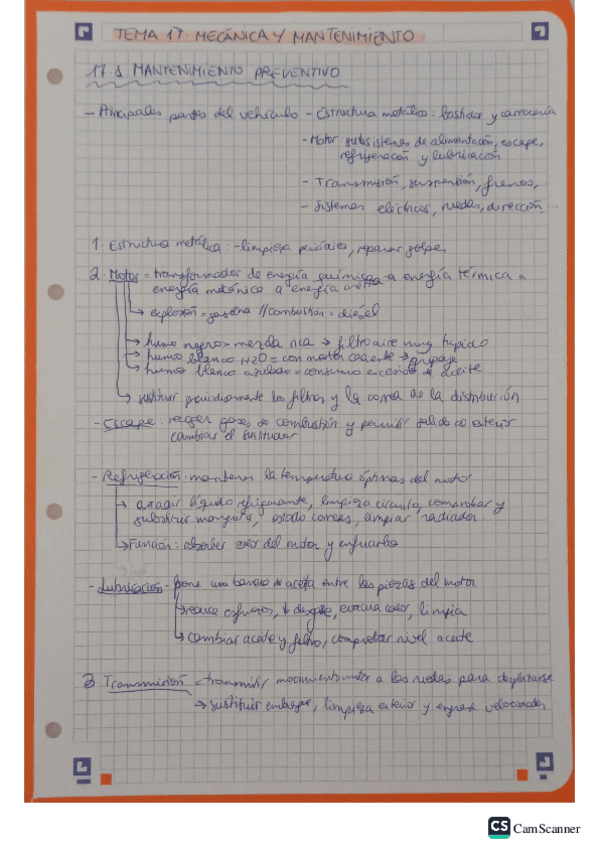 TEMA 17 MECÁNICA Y MANTENIMIENTO
17.1 MANTENIMIENTO PREVENTIVO
- Principales partes del vehículo - Estructura metálica: bastidor y carrocería
- Motor subsistemas de alimentación, escape,
refrigeración y lubricación
- Transmisión, suspensión, frenos,
- Sistemas eléctricos, ruedas, dirección.
1. Estructura metálica: - limpieza periódica, reparar golpes
2. Motor = transformador de energía química a energía térmica a
energía mecánica a energía
→ explosión = gasolina // combustión = diésel
→ humo negro = mezcla rica → filtro aire muy tupido
→ humo blanco H2O = con motor caliente → gripaje
→ humo blanco azulado = consumo excesivo de aceite
→ sustituir periódicamente los filtros y la correa de la distribución
- Escape: recoger gases de combustión y permitir salida al exterior
cambiar el
- Refrigeración: mantener la temperatura óptima del motor
→ añadir líquido refrigerante, limpieza circuito, comprobar y
substituir estado correas, limpiar radiador.
→ Función: absorber calor del motor y enfriarlo
- Lubricación: pone una de aceite entre las piezas del motor
→ reduce esfuerzos, ↓ desgaste, evacua calor, limpia
→ cambiar aceite y filtro, comprobar nivel aceite
3. Transmisión = transmitir movimiento motor a las ruedas para desplazarse
→ sustituir embrague, limpieza exterior y engrase velocidades
CS CamScanner